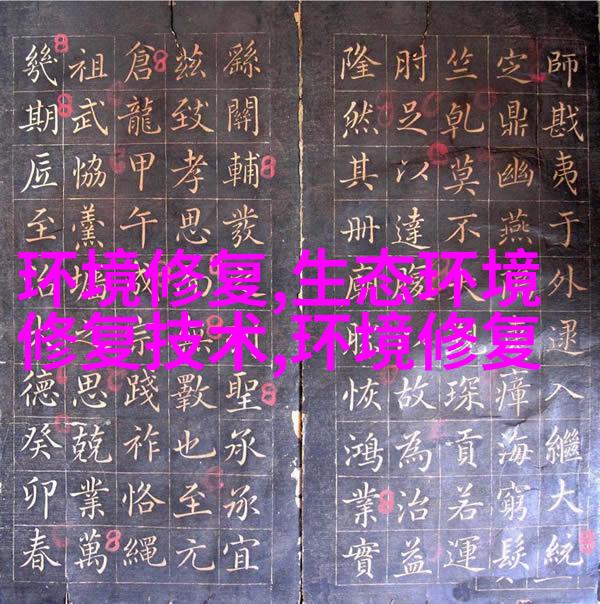 环境修复,生态环境
修复技术,环境修复
師戡夷于外逮入繼大統
定鼎幽燕瘴海窮髮
竺乹莫不琛貢若運
肘足以達故為治益
隆然其冊恢鴻業實
繇關輔發聖承承宜
茲致孝思斁也至元
倉龍甲午成宗踐祚恪繩
祖武協羹墙之思兢業萬
幾期至治德癸卯春